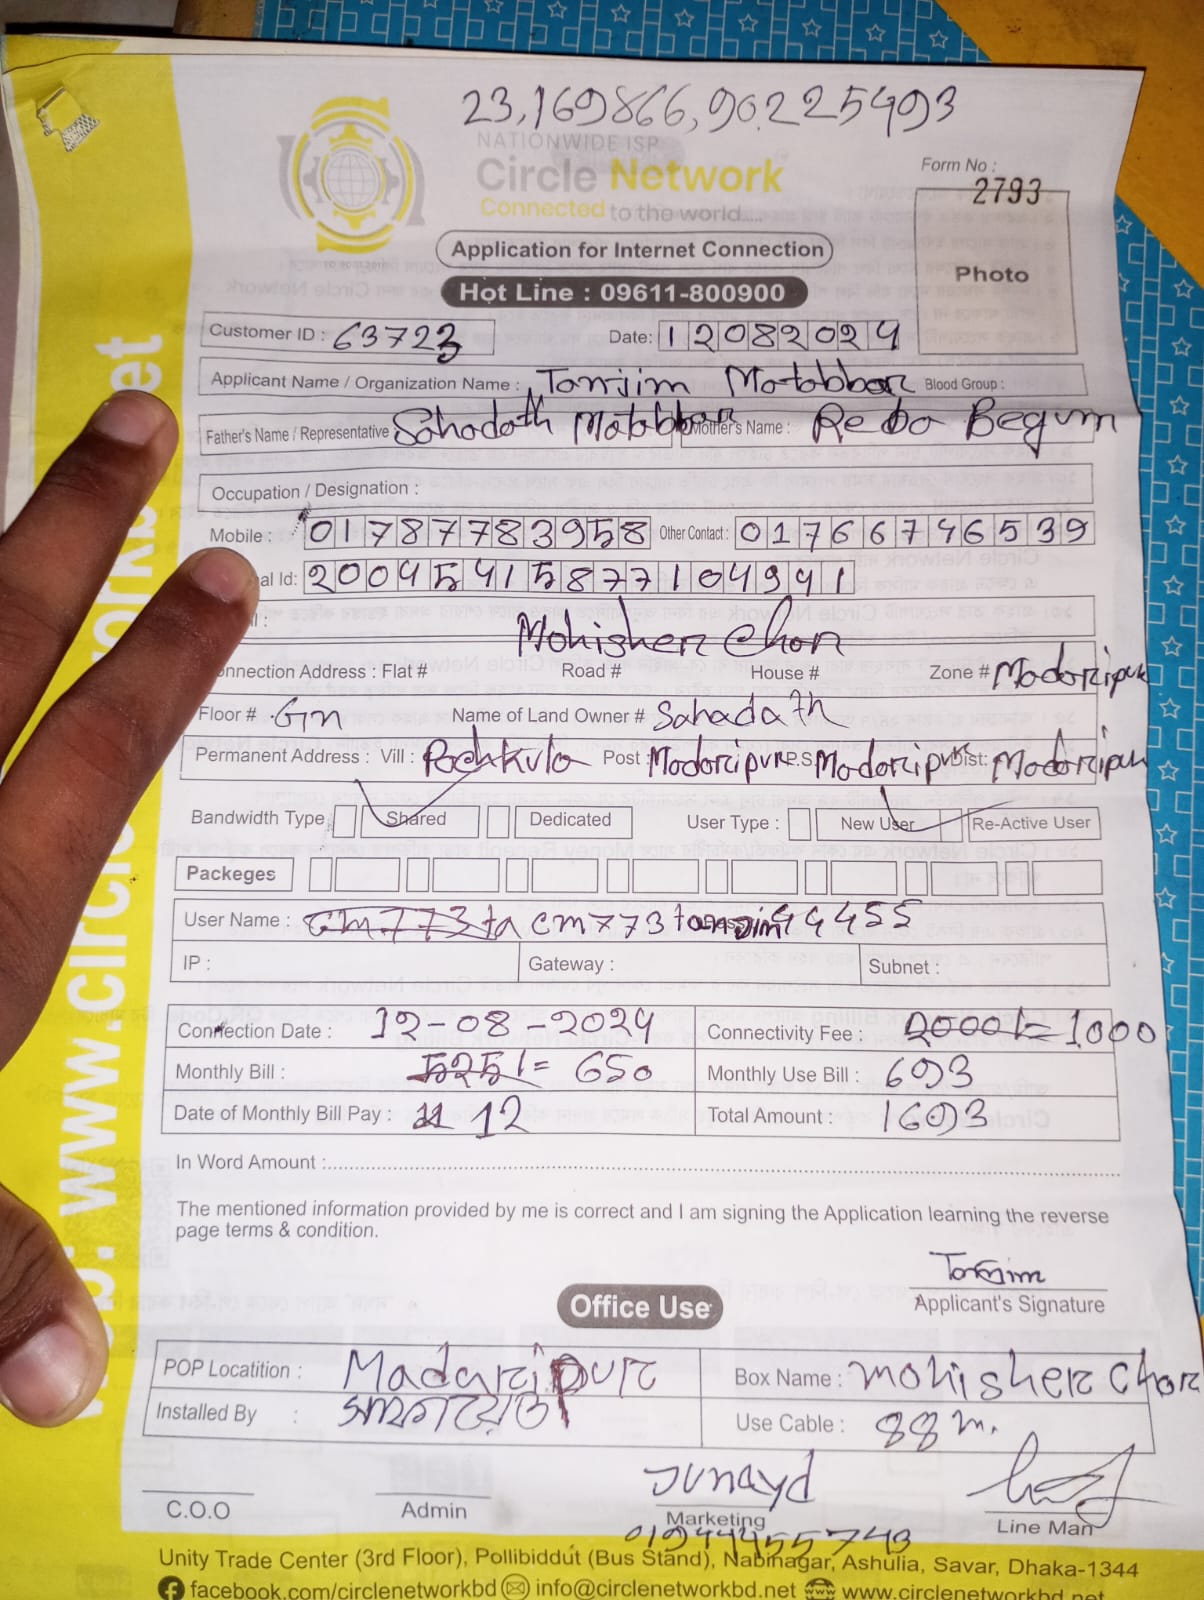 23,169866,90.225493
NATIONWIDE ISP
Circle Network
Connected to the world....
Form No :
2793
Photo
Application for Internet Connection
Hot Line : 09611-800900
Customer ID : 63723
Date: 12082024
Applicant Name / Organization Name : Tanjim Matabbar Blood Group :
Father's Name / Representative Sahadath Matabbar Mother's Name : Reba Begum
Occupation / Designation :
Mobile : 01787783958 Other Contact : 01766746539
al Id: 20045415877104941
Mohisher Chor
Connection Address : Flat # Road # House # Zone # Madaripur
Floor # Gm Name of Land Owner # Sahadath
Permanent Address : Vill : Pachkula Post : Madaripur P.S: Madaripur Dist: Madaripur
Bandwidth Type Shared Dedicated User Type : New User Re-Active User
Packeges
User Name : cm773ta cm773tanjim44455
IP : Gateway : Subnet :
Connection Date : 12-08-2024 Connectivity Fee : 2000/= 1000
Monthly Bill : 525/= 650 Monthly Use Bill : 693
Date of Monthly Bill Pay : 11 12 Total Amount : 1693
In Word Amount :
The mentioned information provided by me is correct and I am signing the Application learning the reverse
page terms & condition.
Tanjim
Applicant's Signature
Office Use
POP Locatition : Madaripur Box Name : Mohisher Chor
Installed By : Use Cable : 88 m.
Junayd
C.O.O Admin Marketing Line Man
01944455743
Unity Trade Center (3rd Floor), Pollibiddut (Bus Stand), Nabinagar, Ashulia, Savar, Dhaka-1344
facebook.com/circlenetworkbd info@circlenetworkbd.net www.circlenetworkbd.net